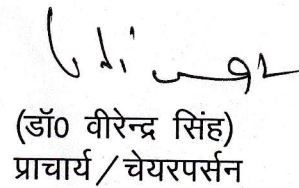 (डॉ0 वीरेन्द्र सिंह)
प्राचार्य / चेयरपर्सन